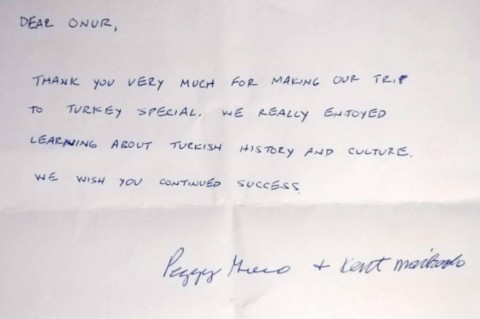 DEAR ONUR,
THANK YOU VERY MUCH FOR MAKING OUR TRIP
TO TURKEY SPECIAL. WE REALLY ENJOYED
LEARNING ABOUT TURKISH HISTORY AND CULTURE.
WE WISH YOU CONTINUED SUCCESS
Peggy + Kent